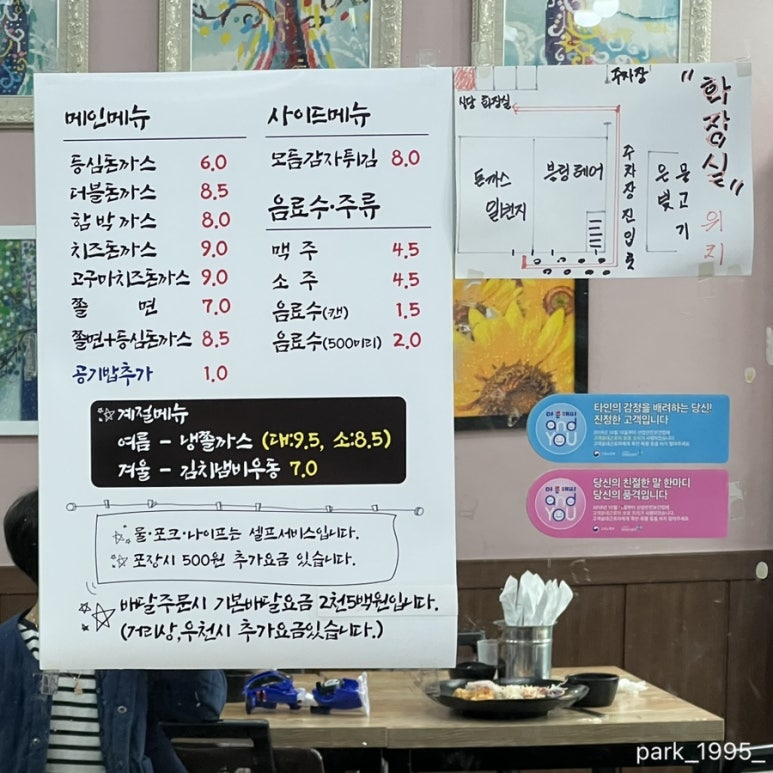 메인메뉴
등심돈까스 6.0
더블돈까스 8.5
함박까스 8.0
치즈돈까스 9.0
고구마치즈돈까스 9.0
쫄 면 7.0
쫄면+등심돈까스 8.5
공기밥추가 1.0
사이드메뉴
모듬감자튀김 8.0
음료수·주류
맥 주 4.5
소 주 4.5
음료수(캔) 1.5
음료수(500미리) 2.0
계절메뉴
여름 - 냉쫄까스 (대:9.5, 소:8.5)
겨울 - 김치냄비우동 7.0
물·포크·나이프는 셀프서비스입니다.
포장시 500원 추가요금 있습니다.
배달주문시 기본배달요금 2천5백원입니다.
(거리상,우천시 추가요금있습니다.)
"화장실" 위치
주차장
식당 화장실
돈까스
일번지
블링헤어
주차장 진입로
은빛
물고기
타인의 감정을 배려하는 당신!
진정한 고객입니다
and
YOU
당신의 친절한 말 한마디
당신의 품격입니다
and
YOU
park_1995_